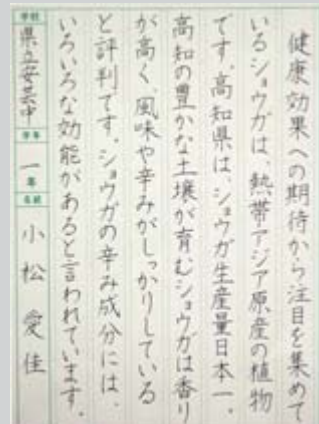 健康効果への期待から注目を集めて
いるショウガは、熱帯アジア原産の植物
です。高知県は、ショウガ生産量日本一。
高知の豊かな土壌が育むショウガは香り
が高く、風味や辛みがしっかりしている
と評判です。ショウガの辛み成分には、
いろいろな効能があると言われています。
学校 県立安芸中 学年 一年 名前 小松愛佳